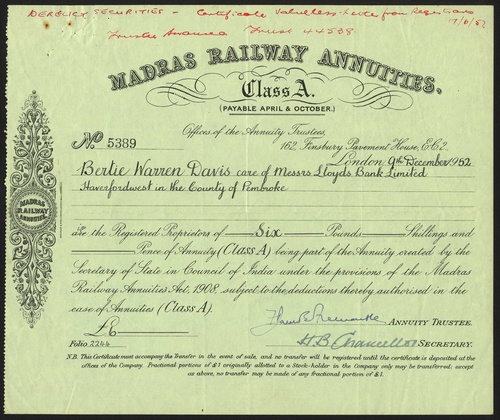 DERELICT SECURITIES - Certificate Valueless - Letter from Registrars
7/6/62
Trustee Swansea Trust 44538
MADRAS RAILWAY ANNUITIES.
Class A.
(PAYABLE APRIL & OCTOBER.)
Offices of the Annuity Trustees,
No 5389
162, Finsbury Pavement House, E.C.2.
London, 9th December 1952
Bertie Warren Davis care of Messrs Lloyds Bank Limited
Haverfordwest in the County of Pembroke
MADRAS
RAILWAY
ANNUITIES
are the Registered Proprietors of Six Pounds Shillings and
Pence of Annuity (Class A) being part of the Annuity created by the
Secretary of State in Council of India under the provisions of the Madras
Railway Annuities Act, 1908, subject to the deductions thereby authorised in the
case of Annuities (Class A).
£6
ANNUITY TRUSTEE.
Folio 2244
H.B. Chancellor SECRETARY.
N.B. This Certificate must accompany the Transfer in the event of sale, and no transfer will be registered until the certificate is deposited at the
offices of the Company. Fractional portions of £1 originally allotted to a Stock-holder in the Company only may be transferred; except
as above, no transfer may be made of any fractional portion of £1.